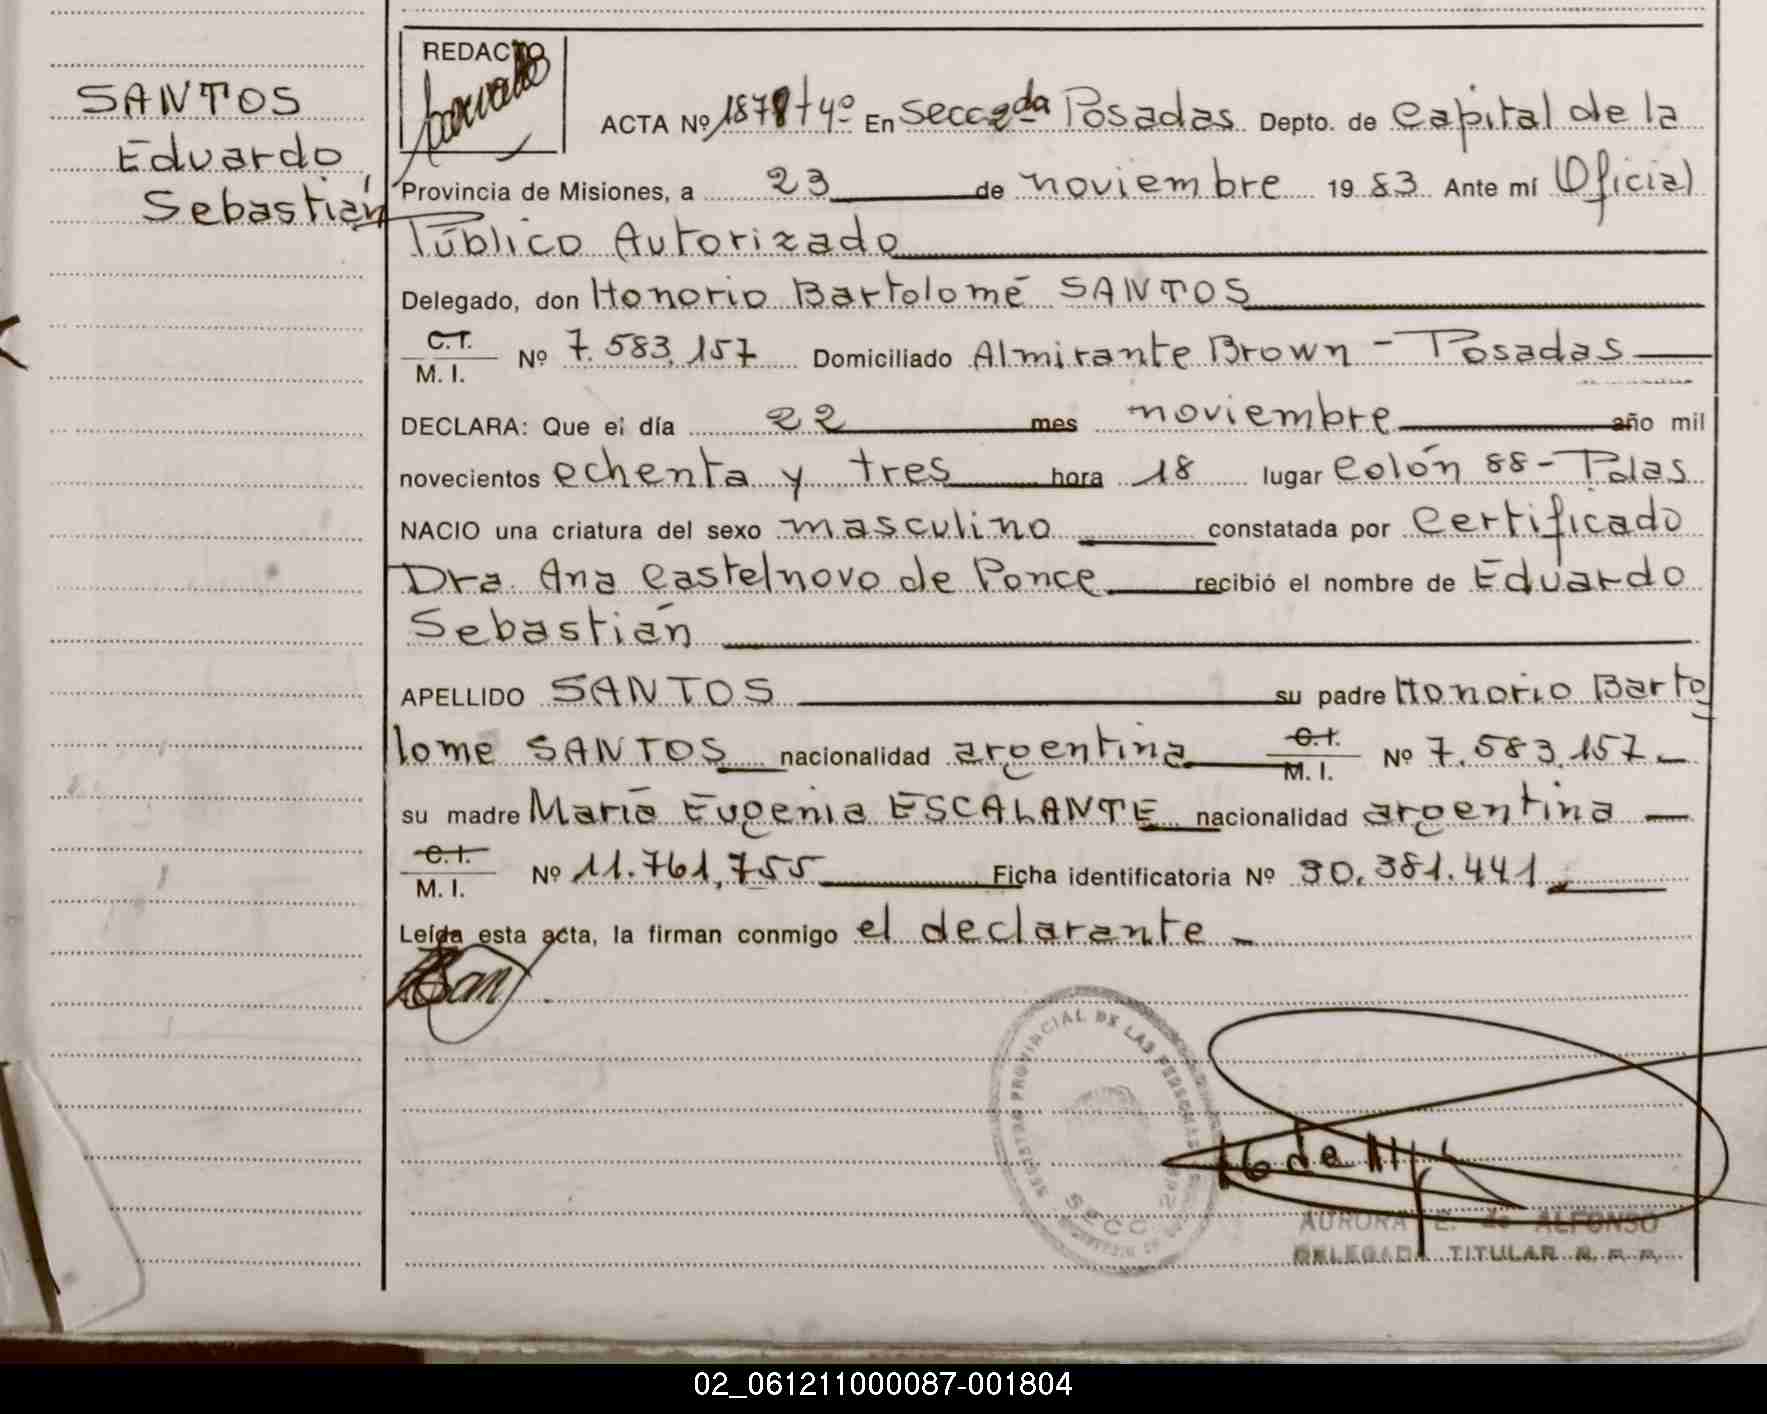 SANTOS
Eduardo
Sebastián
REDACTO
ACTA Nº 1878 t 4º En Secc 2da Posadas Depto. de Capital de la
Provincia de Misiones, a 23 de noviembre 1983 Ante mí Oficial
Público Autorizado
Delegado, don Honorio Bartolomé SANTOS
C.I.
M. I. Nº 7.583.157 Domiciliado Almirante Brown - Posadas
DECLARA: Que el día 22 mes noviembre año mil
novecientos ochenta y tres hora 18 lugar Colón 88 - Pdas
NACIO una criatura del sexo masculino constatada por Certificado
Dra. Ana Castelnovo de Ponce recibió el nombre de Eduardo
Sebastián
APELLIDO SANTOS su padre Honorio Barto
lome SANTOS nacionalidad argentina C.I. M. I. Nº 7.583.157
su madre María Eugenia ESCALANTE nacionalidad argentina
C.I.
M. I. Nº 11.761.755 Ficha identificatoria Nº 30.381.441
Leída esta acta, la firman conmigo el declarante
REGISTRO PROVINCIAL DE LAS PERSONAS
SECC
AURORA E. de ALFONSO
DELEGADA TITULAR R. P. P.
02_061211000087-001804